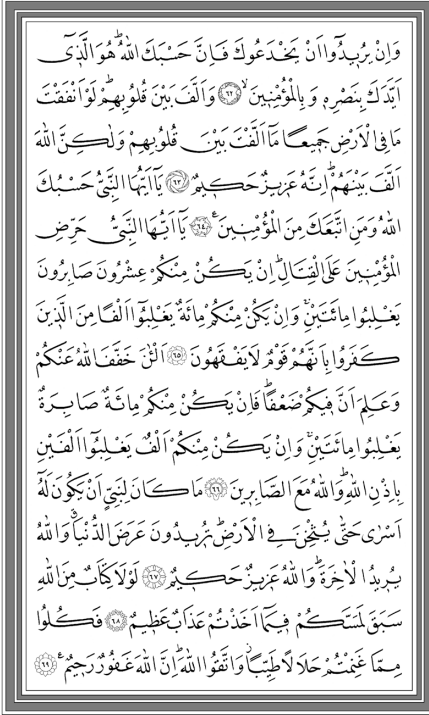 وَاِنْ يُرٖيدُٓوا اَنْ يَخْدَعُوكَ فَاِنَّ حَسْبَكَ اللّٰهُؕ هُوَ الَّذٖٓي
اَيَّدَكَ بِنَصْرِهٖ وَبِالْمُؤْمِنٖينَۙ ﴿٦٢﴾ وَاَلَّفَ بَيْنَ قُلُوبِهِمْؕ لَوْ اَنْفَقْتَ
مَا فِي الْاَرْضِ جَمٖيعًا مَٓا اَلَّفْتَ بَيْنَ قُلُوبِهِمْ وَلٰكِنَّ اللّٰهَ
اَلَّفَ بَيْنَهُمْؕ اِنَّهُ عَزٖيزٌ حَكٖيمٌ ﴿٦٣﴾ يَٓا اَيُّهَا النَّبِيُّ حَسْبُكَ
اللّٰهُ وَمَنِ اتَّبَعَكَ مِنَ الْمُؤْمِنٖينَࣖ ﴿٦٤﴾ يَٓا اَيُّهَا النَّبِيُّ حَرِّضِ
الْمُؤْمِنٖينَ عَلَى الْقِتَالِؕ اِنْ يَكُنْ مِنْكُمْ عِشْرُونَ صَابِرُونَ
يَغْلِبُوا مِائَتَيْنِۚ وَاِنْ يَكُنْ مِنْكُمْ مِائَةٌ يَغْلِبُٓوا اَلْفًا مِنَ الَّذٖينَ
كَفَرُوا بِاَنَّهُمْ قَوْمٌ لَا يَفْقَهُونَ ﴿٦٥﴾ اَلْـٰٔنَ خَفَّفَ اللّٰهُ عَنْكُمْ
وَعَلِمَ اَنَّ فٖيكُمْ ضَعْفًاؕ فَاِنْ يَكُنْ مِنْكُمْ مِائَةٌ صَابِرَةٌ
يَغْلِبُوا مِائَتَيْنِۚ وَاِنْ يَكُنْ مِنْكُمْ اَلْفٌ يَغْلِبُٓوا اَلْفَيْنِ
بِاِذْنِ اللّٰهِؕ وَاللّٰهُ مَعَ الصَّابِرٖينَ ﴿٦٦﴾ مَا كَانَ لِنَبِيٍّ اَنْ يَكُونَ لَهُٓ
اَسْرٰى حَتّٰى يُثْخِنَ فِي الْاَرْضِؕ تُرٖيدُونَ عَرَضَ الدُّنْيَاۗ وَاللّٰهُ
يُرٖيدُ الْاٰخِرَةَؕ وَاللّٰهُ عَزٖيزٌ حَكٖيمٌ ﴿٦٧﴾ لَوْلَا كِتَابٌ مِنَ اللّٰهِ
سَبَقَ لَمَسَّكُمْ فٖيمَٓا اَخَذْتُمْ عَذَابٌ عَظٖيمٌ ﴿٦٨﴾ فَكُلُوا
مِمَّا غَنِمْتُمْ حَلَالًا طَيِّبًاۘ وَاتَّقُوا اللّٰهَؕ اِنَّ اللّٰهَ غَفُورٌ رَحٖيمٌࣖ ﴿٦٩﴾